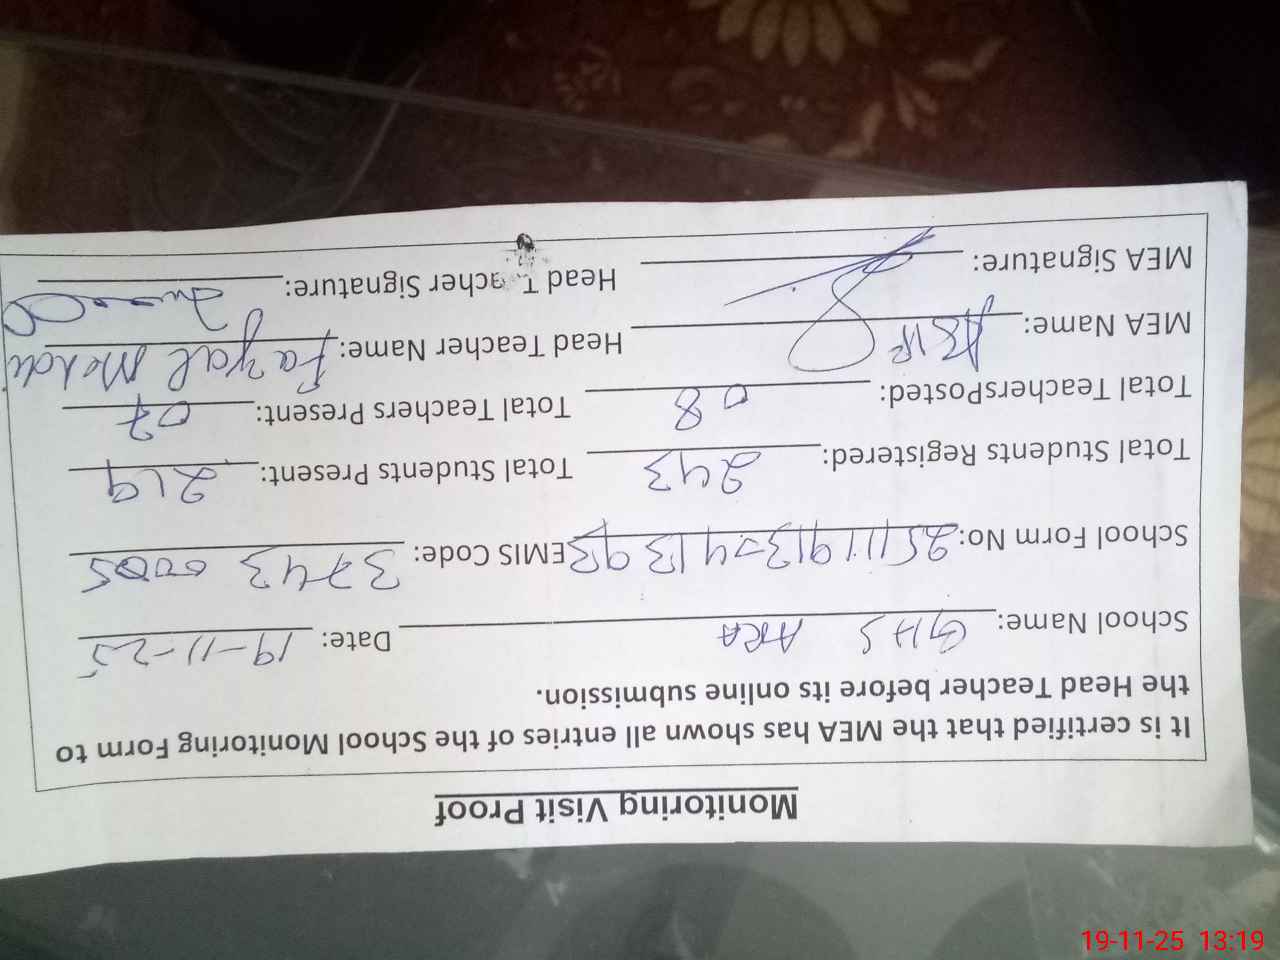 Monitoring Visit Proof
It is certified that the MEA has shown all entries of the School Monitoring Form to
the Head Teacher before its online submission.
School Name: GHS ARA Date: 19-11-25
School Form No: EMIS Code: 3743 0005
Total Students Registered: 243 Total Students Present: 219
Total TeachersPosted: 08 Total Teachers Present: 07
MEA Name: ASIF Head Teacher Name: Fazal
MEA Signature: Head Teacher Signature:
19-11-25 13:19